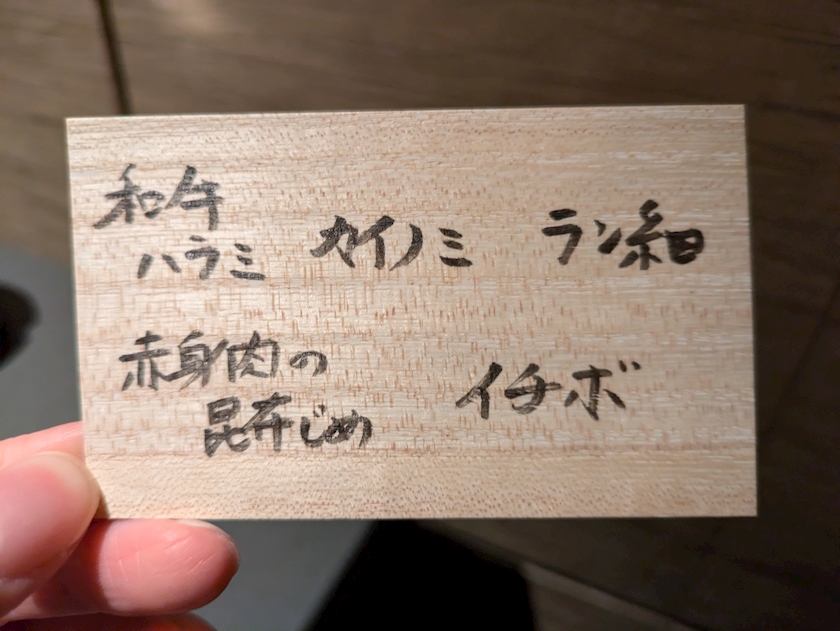 和牛
ハラミ
カイノミ
ラン細
赤身肉の
昆布じめ
イチボ